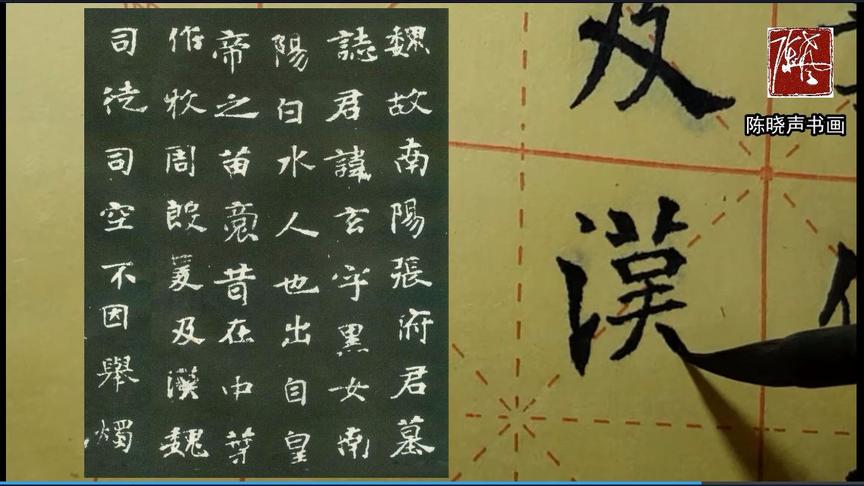 魏故南陽張府君墓
誌君諱玄字黑女南
陽白水人也出自皇
帝之苗裔昔在中葉
作牧周殷爰及漢魏
司徒司空不因舉燭
及漢
陈晓声书画